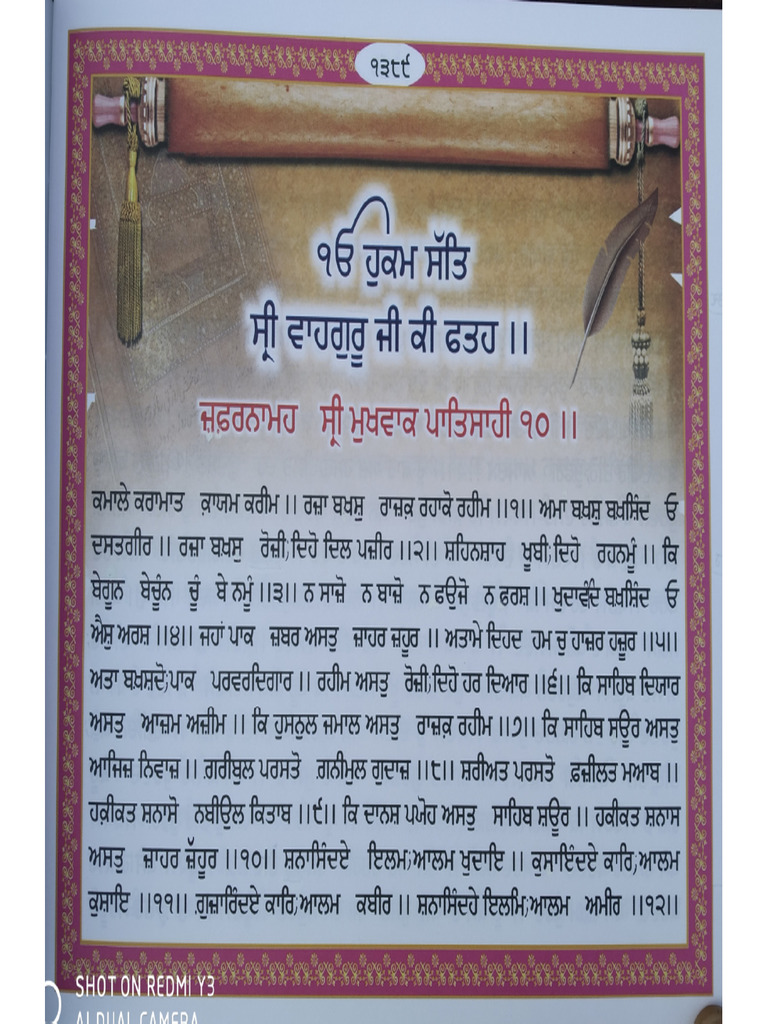 ੧੩੮੯
ੴ ਹੁਕਮ ਸੱਤਿ
ਸ੍ਰੀ ਵਾਹਗੁਰੂ ਜੀ ਕੀ ਫਤਹ ॥
ਜ਼ਫ਼ਰਨਾਮਹ ਸ੍ਰੀ ਮੁਖਵਾਕ ਪਾਤਿਸਾਹੀ ੧੦ ॥
ਕਮਾਲੇ ਕਰਾਮਾਤ ਕ਼ਾਯਮ ਕਰੀਮ ॥ ਰਜ਼ਾ ਬਖਸ਼ੁ ਰਾਜ਼ਕ਼ ਰਹਾਕੋ ਰਹੀਮ ॥੧॥ ਅਮਾ ਬਖ਼ਸ਼ੁ ਬਖ਼ਸ਼ਿੰਦ ਓ
ਦਸਤਗੀਰ ॥ ਰਜ਼ਾ ਬਖ਼ਸੁ ਰੋਜ਼ੀ;ਦਿਹੋ ਦਿਲ ਪਜ਼ੀਰ ॥੨॥ ਸ਼ਹਿਨਸ਼ਾਹ ਖ਼ੂਬੀ;ਦਿਹੋ ਰਹਨਮੂੰ ॥ ਕਿ
ਬੇਗੂਨ ਬੇਚੂੰਨ ਚੂੰ ਬੇ ਨਮੂੰ ॥੩॥ ਨ ਸਾਜ਼ੋ ਨ ਬਾਜ਼ੋ ਨ ਫਉਜੋ ਨ ਫਰਸ਼ ॥ ਖੁਦਾਵੰਦ ਬਖ਼ਸ਼ਿੰਦ ਓ
ਐਸ਼ੁ ਅਰਸ਼ ॥੪॥ ਜਹਾਂ ਪਾਕ ਜ਼ਬਰ ਅਸਤੁ ਜ਼ਾਹਰ ਜ਼ਹੂਰ ॥ ਅਤਾਮੇ ਦਿਹਦ ਹਮ ਚੁ ਹਾਜ਼ਰ ਹਜ਼ੂਰ ॥੫॥
ਅਤਾ ਬਖ਼ਸ਼ਦੋ;ਪਾਕ ਪਰਵਰਦਿਗਾਰ ॥ ਰਹੀਮ ਅਸਤੁ ਰੋਜ਼ੀ;ਦਿਹੋ ਹਰ ਦਿਆਰ ॥੬॥ ਕਿ ਸਾਹਿਬ ਦਿਯਾਰ
ਅਸਤੁ ਆਜ਼ਮ ਅਜ਼ੀਮ ॥ ਕਿ ਹੁਸਨੁਲ ਜਮਾਲ ਅਸਤੁ ਰਾਜ਼ਕ਼ ਰਹੀਮ ॥੭॥ ਕਿ ਸਾਹਿਬ ਸਊਰ ਅਸਤੁ
ਆਜਿਜ਼ ਨਿਵਾਜ਼ ॥ ਗ਼ਰੀਬੁਲ ਪਰਸਤੋ ਗ਼ਨੀਮੁਲ ਗੁਦਾਜ਼ ॥੮॥ ਸ਼ਰੀਅਤ ਪਰਸਤੋ ਫ਼ਜ਼ੀਲਤ ਮਆਬ ॥
ਹਕ਼ੀਕਤ ਸ਼ਨਾਸੋ ਨਬੀਉਲ ਕਿਤਾਬ ॥੯॥ ਕਿ ਦਾਨਸ਼ ਪਯੋਹ ਅਸਤੁ ਸਾਹਿਬ ਸ਼ਊਰ ॥ ਹਕੀਕਤ ਸ਼ਨਾਸ
ਅਸਤੁ ਜ਼ਾਹਰ ਜ਼ੱਹੂਰ ॥੧੦॥ ਸ਼ਨਾਸਿੰਦਏ ਇਲਮ;ਆਲਮ ਖੁਦਾਇ ॥ ਕੁਸਾਇੰਦਏ ਕਾਰਿ;ਆਲਮ
ਕੁਸ਼ਾਇ ॥੧੧॥ ਗੁਜ਼ਾਰਿੰਦਏ ਕਾਰਿ;ਆਲਮ ਕਬੀਰ ॥ ਸ਼ਨਾਸਿੰਦਹੇ ਇਲਮਿ;ਆਲਮ ਅਮੀਰ ॥੧੨॥
SHOT ON REDMI Y3
AI DUAL CAMERA